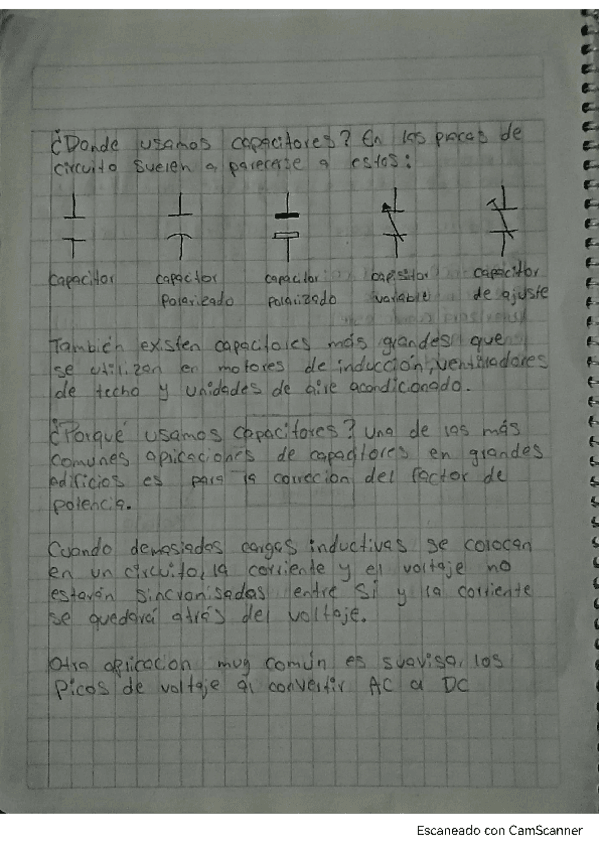 ¿Donde usamos capacitores? En las placas de
circuito suelen a parecerse a estos:
capacitor capacitor capacitor capacitor capacitor
polarizado polarizado variable de ajuste
También existen capacitores más grandes que
se utilizan en motores de inducción, ventiladores
de techo y unidades de aire acondicionado.
¿Porqué usamos capacitores? Una de las más
comunes aplicaciones de capacitores en grandes
edificios es para la correcion del factor de
potencia.
Cuando demasiadas cargas inductivas se colocan
en un circuito, la corriente y el voltaje no
estarán sincronisadas entre sí y la corriente
se quedará atrás del voltaje.
Otra aplicacion muy común es suavisar los
picos de voltaje al convertir AC a DC
Escaneado con CamScanner